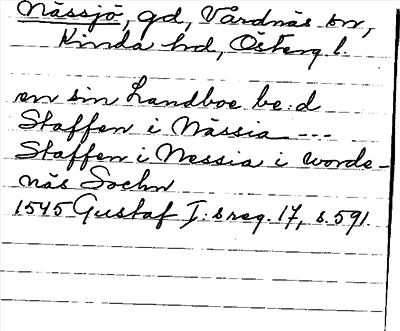 Nässjö, gd, Vårdnäs sn,
Kinda hd, Österg l.
en sin Landboe be:d
Staffen i Nässia ---
Staffen i Nessia i worde-
näs Sochn
1545 Gustaf I:s reg. 17, s. 591.